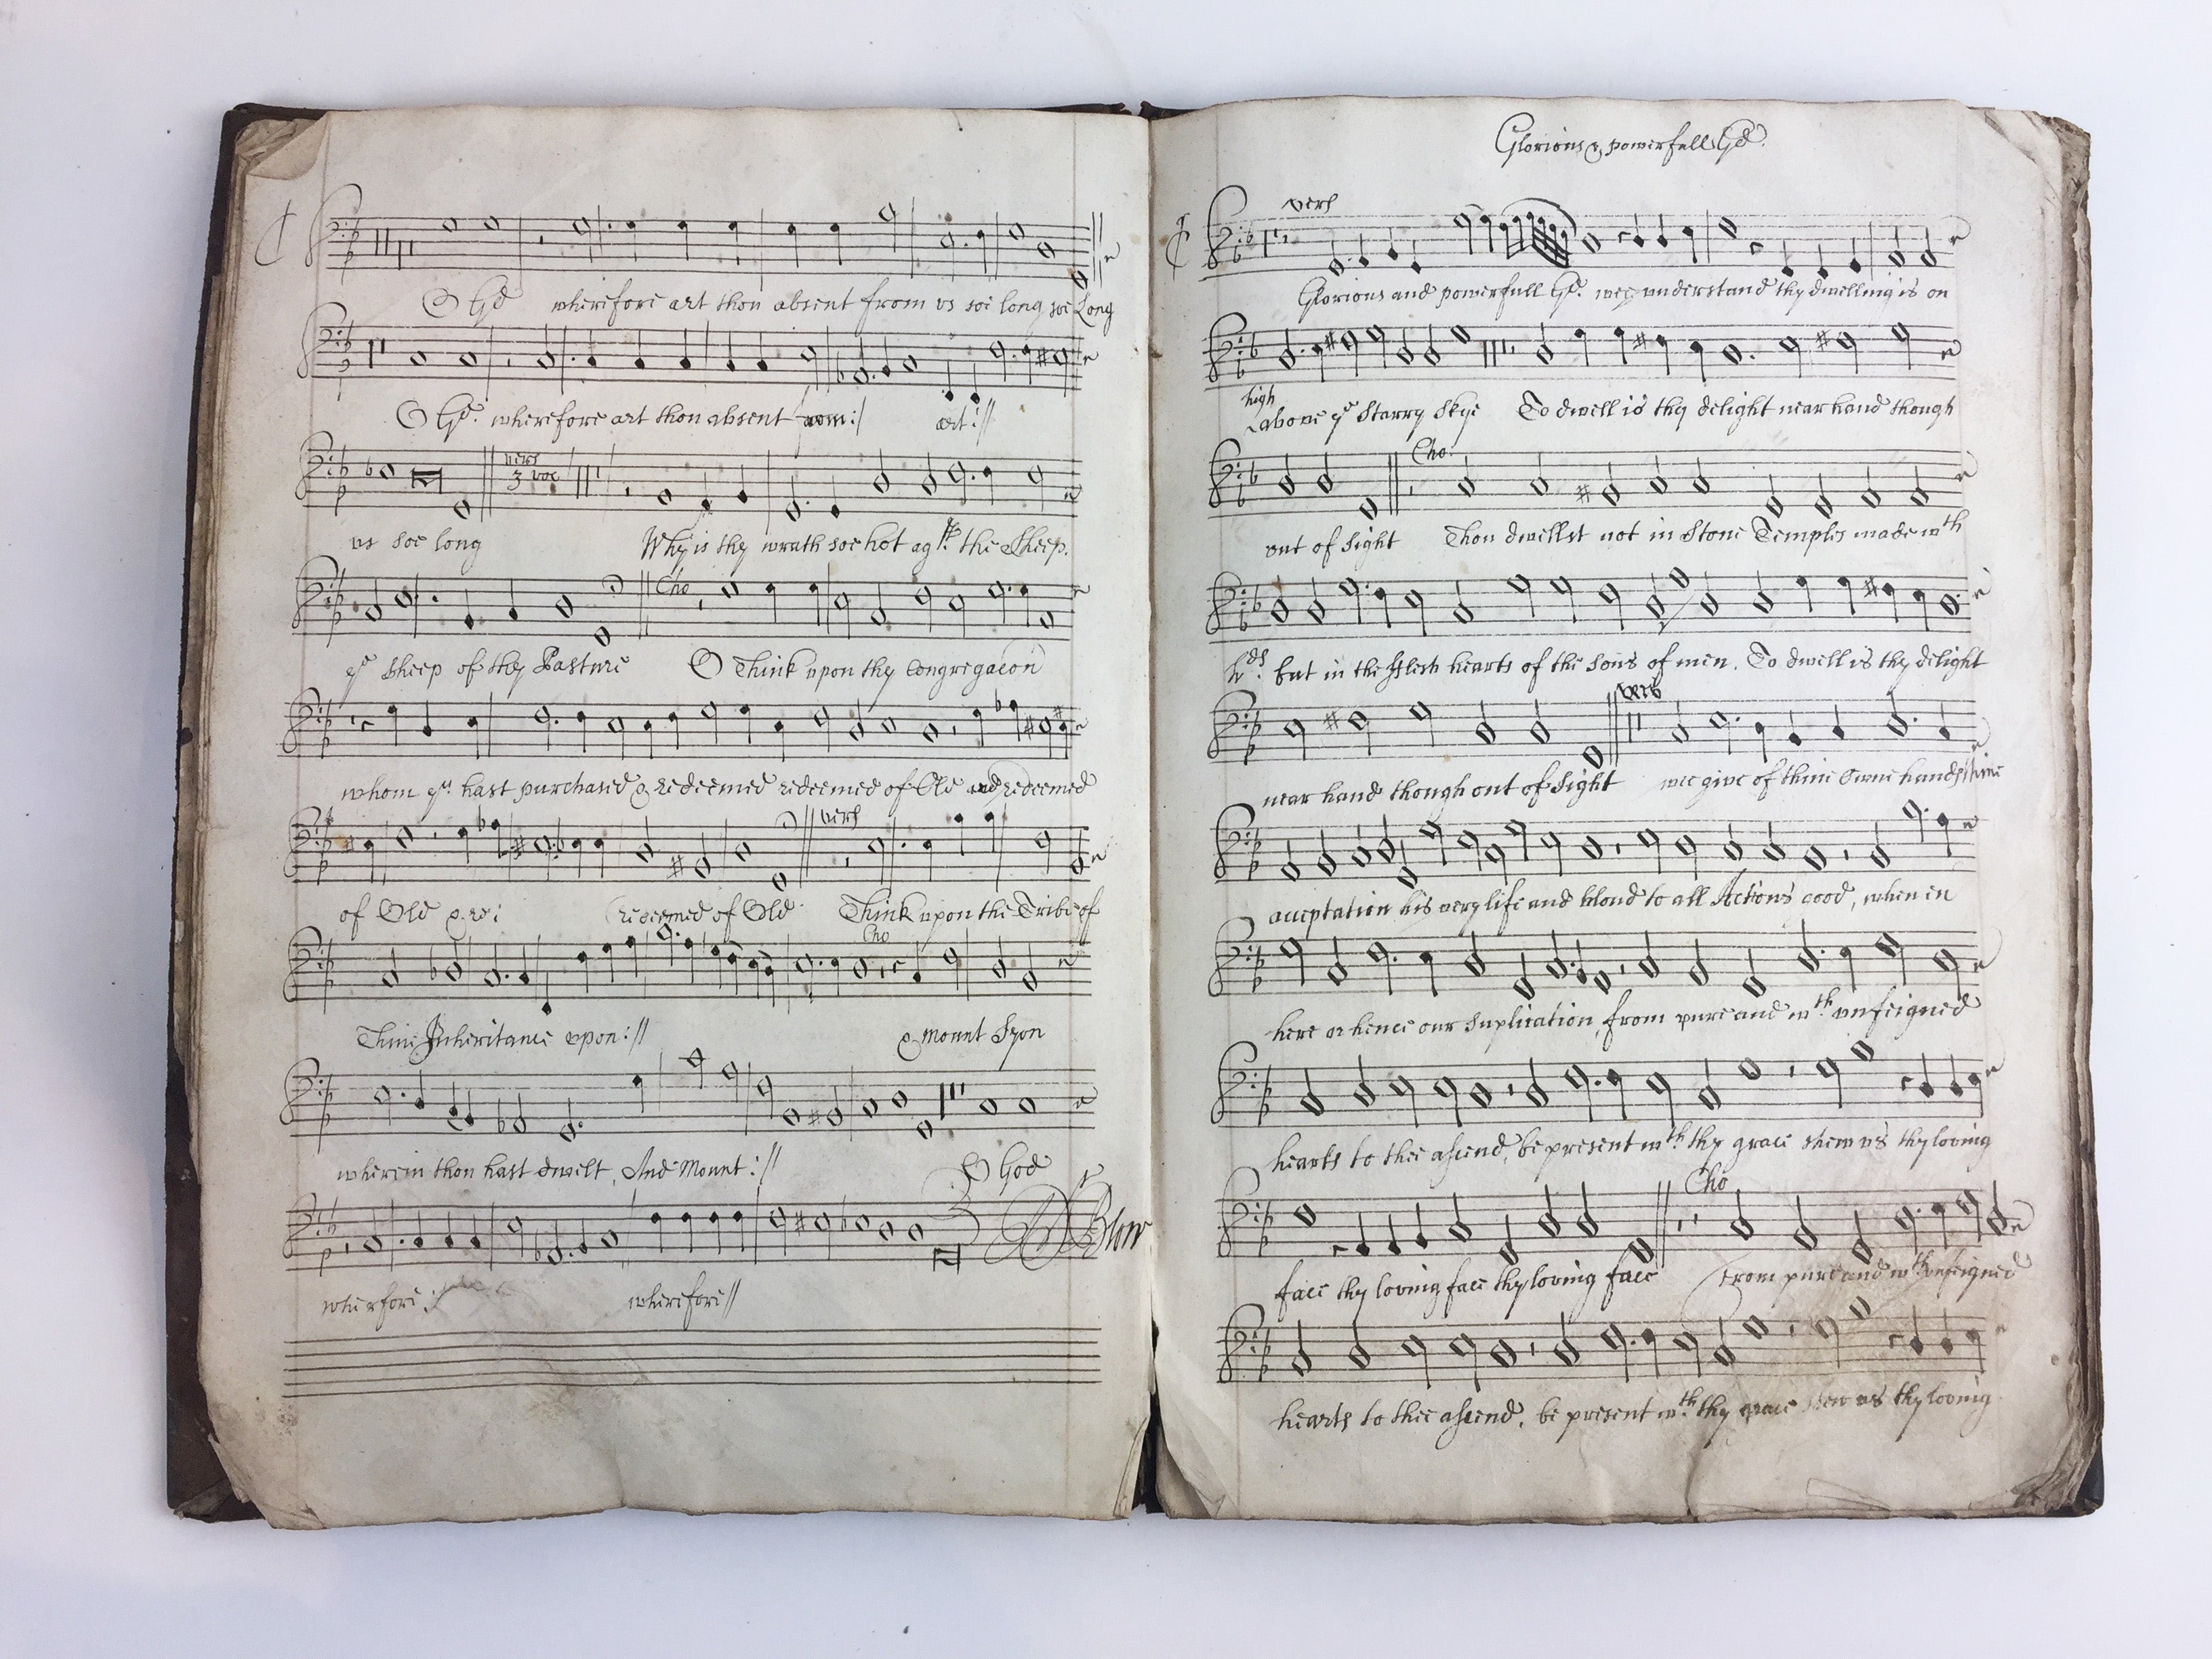 O Gd wherefore art thou absent from vs soe long soe Long
O Gd. wherefore art thou absent from:/ art://
vers
3 voc
vs soe long Why is thy wrath soe hot agst. the Sheep.
Cho
ye Sheep of thy Pasture O Think upon thy Congregacon
whom yu. hast purchased & redeemed redeemed of Old and redeemed
vers
of Old & re: redeemed of Old Think upon the Tribe of
Cho
Thine Inheritance upon:// & mount Syon
wherein thou hast dwelt, And Mount:// O God
Dr Blow
wherfore:/ wherefore//
Glorious & powerfull Gd.
vers
Glorious and powerfull Gd. wee understand thy dwelling is on
high
above ye Starry Skye To dwell is thy delight near hand though
Cho.
out of Sight Thou dwellst not in Stone Temples made wth
hds. but in the flesh hearts of the sons of men. To dwell is thy delight
vers
near hand though out of Sight wee give of thine Owne hands thine
acceptation his very life and bloud to all Actions good, when en
here or hence our Suplication, from pure and wth. unfeigned
hearts to thee ascend, be present wth. thy grace shew vs thy loving
Cho
face thy loving face thy loving face From pure and wth unfeigned
hearts to thee ascend, be present wth. thy grace shew us thy loving